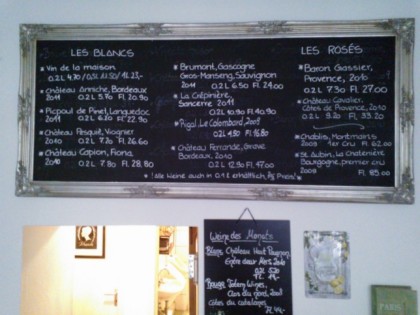 LES BLANCS
* Vin de la maison
0.2L 4.70 / 0.5L 11.50 / 1L 23,-
* Château Anniche, Bordeaux
2011 0.2L 5.70 Fl. 20.90
* Picpoul de Pinet, Languedoc
2011 0.2L 6.20 Fl. 22.90
* Château Pesquit, Viognier
2010 0.2L 7.20 Fl. 26.60
* Château Capion, Fiona
2010 0.2L 7.80 Fl. 28.80
* Brumont, Gascogne
Gros-Manseng, Sauvignon
2011 0.2L 6.50 Fl. 24.00
* La Crépinière,
Sancerre 2011
0.2L 10.90 Fl. 40.90
* Rigal, Le Colombard, 2009
0.2L 4.50 Fl. 16.80
* Château Ferrande, Grave
Bordeaux, 2010
0.2L 12.90 Fl. 47.00
* Alle Weine auch in 0.1L erhältlich,
LES ROSÉS
* Baron Gassier,
Provence, 2010
0.2L 7.30 Fl. 27.00
* Château Cavalier,
Côtes de Provence, 2010
0.2L 9.20 Fl. 33.20
* Chablis, Montmains
2009 1er Cru Fl. 62.00
* St. Aubin, La Chatenière
Bourgogne, premier cru
2009 Fl. 85.00
Weine des Monats
Blanc Château Haut
2010
0.2L
Rouge
2009
Côtes du
PARIS